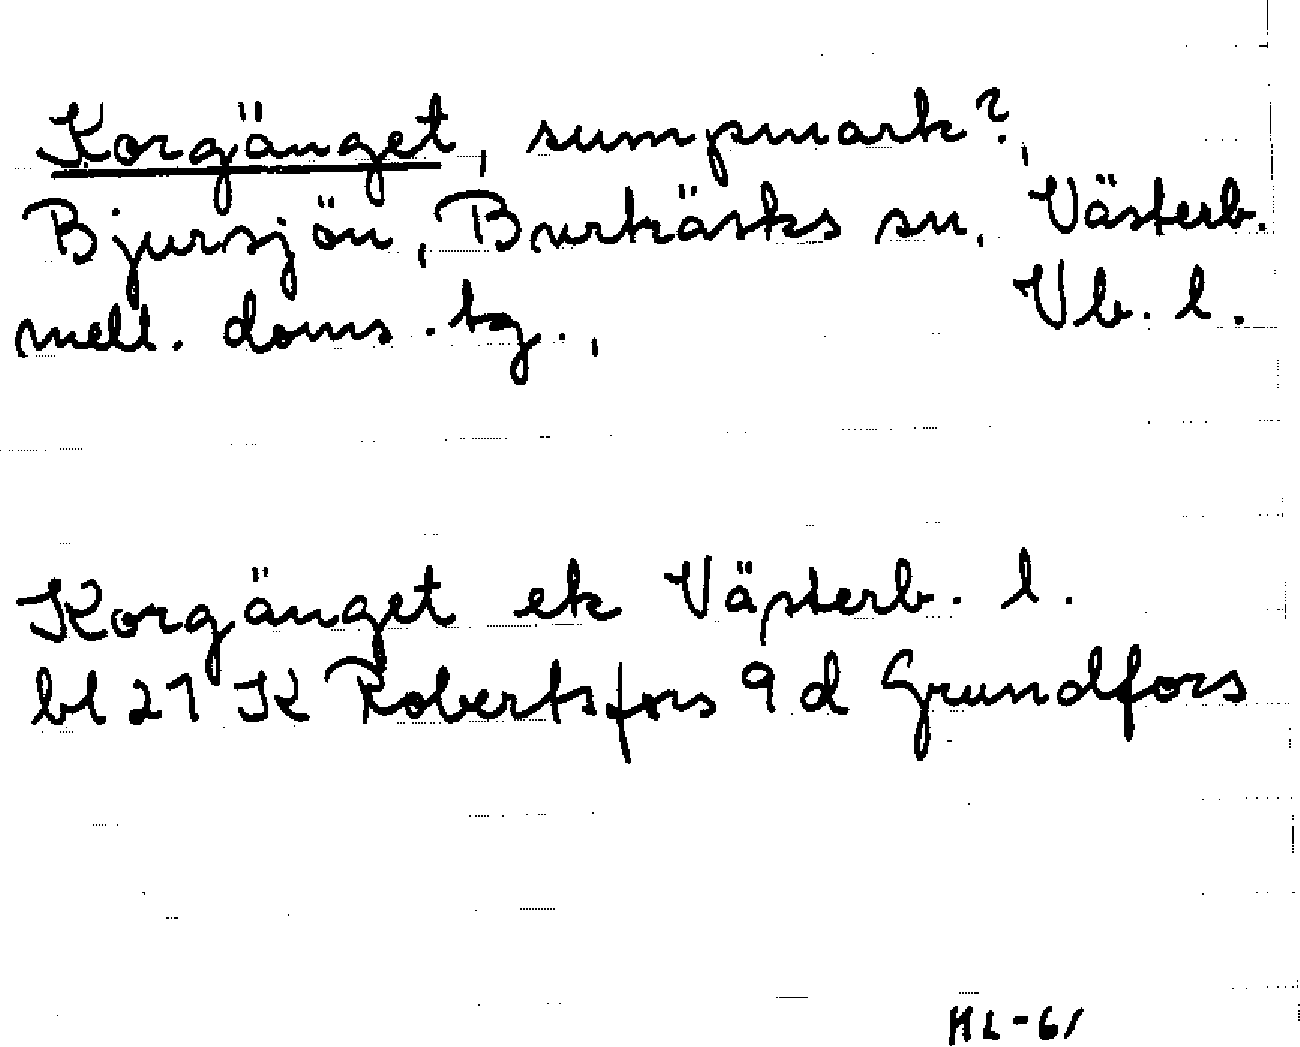 Korgänget, sumpmark?,
Bjursjön, Burträsks sn, Västerb.
mell. doms. tg., Vb. l.
Korgänget ek Västerb. l.
bl 21 K Robertsfors 9 d Grundfors
HL-61